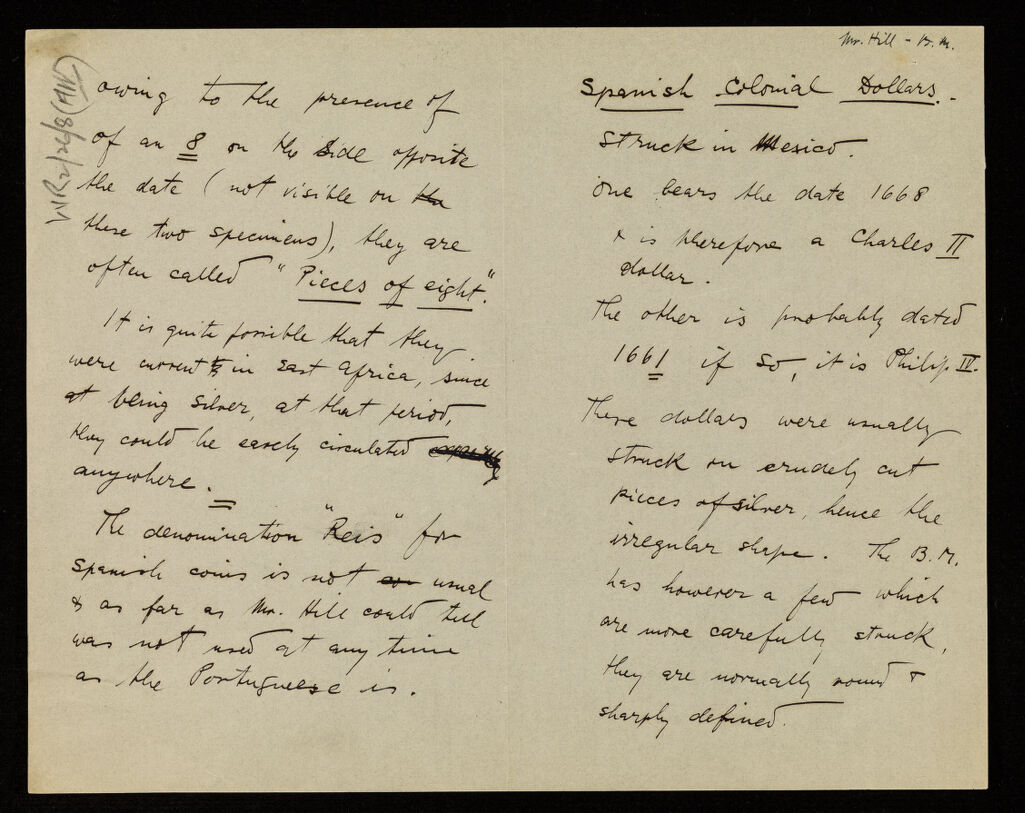 Mr. Hill - B.M.
Spanish Colonial Dollars.-
Struck in Mexico.
One bears the date 1668
& is therefore a Charles II
dollar.
The other is probably dated
1661 if so, it is Philip IV.
These dollars were usually
struck on crudely cut
pieces of silver, hence the
irregular shape. The B.M.
has however a few which
are more carefully struck,
they are normally round &
sharply defined.
WR2/26/8 (AW)
owing to the presence of
of an 8 on the side opposite
the date (not visible on the
these two specimens), they are
often called "Pieces of eight".
It is quite possible that they
were current in East Africa, since
at being silver, at that period,
they could be easely circulated
anywhere.
The denomination "Reis" for
Spanish coins is not usual
& as far as Mr. Hill could tell
was not used at any time
as the Portugueese is.